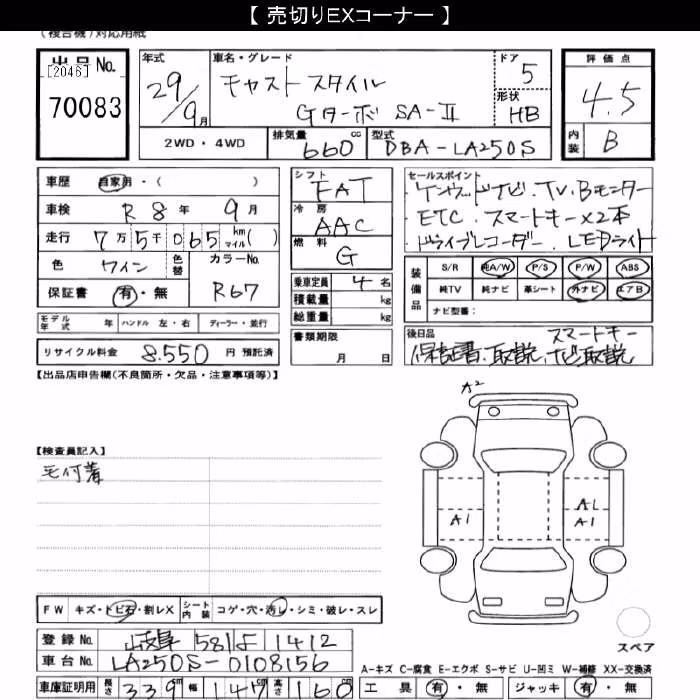 【 売切りEXコーナー 】
(複合機)対応用紙
出品No.
[2046]
70083
年式
29/9月
車名・グレード
キャスト スタイル
Gターボ SA-Ⅱ
ドア
5
形状
HB
評価点
4.5
内装 B
2WD・4WD
排気量 660 cc
型式 DBA-LA250S
車歴 自家用・( )
車検 R 8年 9月
走行 7万5千065 km マイル( )
色 ワイン 色替 カラーNo.
保証書 有・無 R67
モデル年式 年 ハンドル 左・右 ディーラー・並行
リサイクル料金 8.550 円 預託済
シフト FAT
冷房 AAC
燃料 G
乗車定員 4名
積載量 kg
総重量 kg
書類期限
月 日
セールスポイント
ケンウッドナビ.TV.Bモニター
ETC.スマートキー×2本
ドライブレコーダー.LEDライト
装備品
S/R 純A/W P/S P/W ABS
純TV 純ナビ 革シート 外ナビ エアB
ナビ型番:
後日品 スマートキー
保証書.取説.ナビ取説
【出品店申告欄(不良箇所・欠品・注意事項等)】
A2
【検査員記入】
毛付着
A1
A1
A1
FW キズ・トビ石・割レX シート内装 コゲ・穴・汚レ・シミ・破レ・スレ
登録No. 岐阜 581 よ 1412
車台No. LA250S-0108156
スペア
A-キズ C-腐食 E-エクボ S-サビ U-凹ミ W-補修 XX-交換済
車庫証明用 長さ 339 幅 147 高さ 160
工具 有・無 ジャッキ 有・無